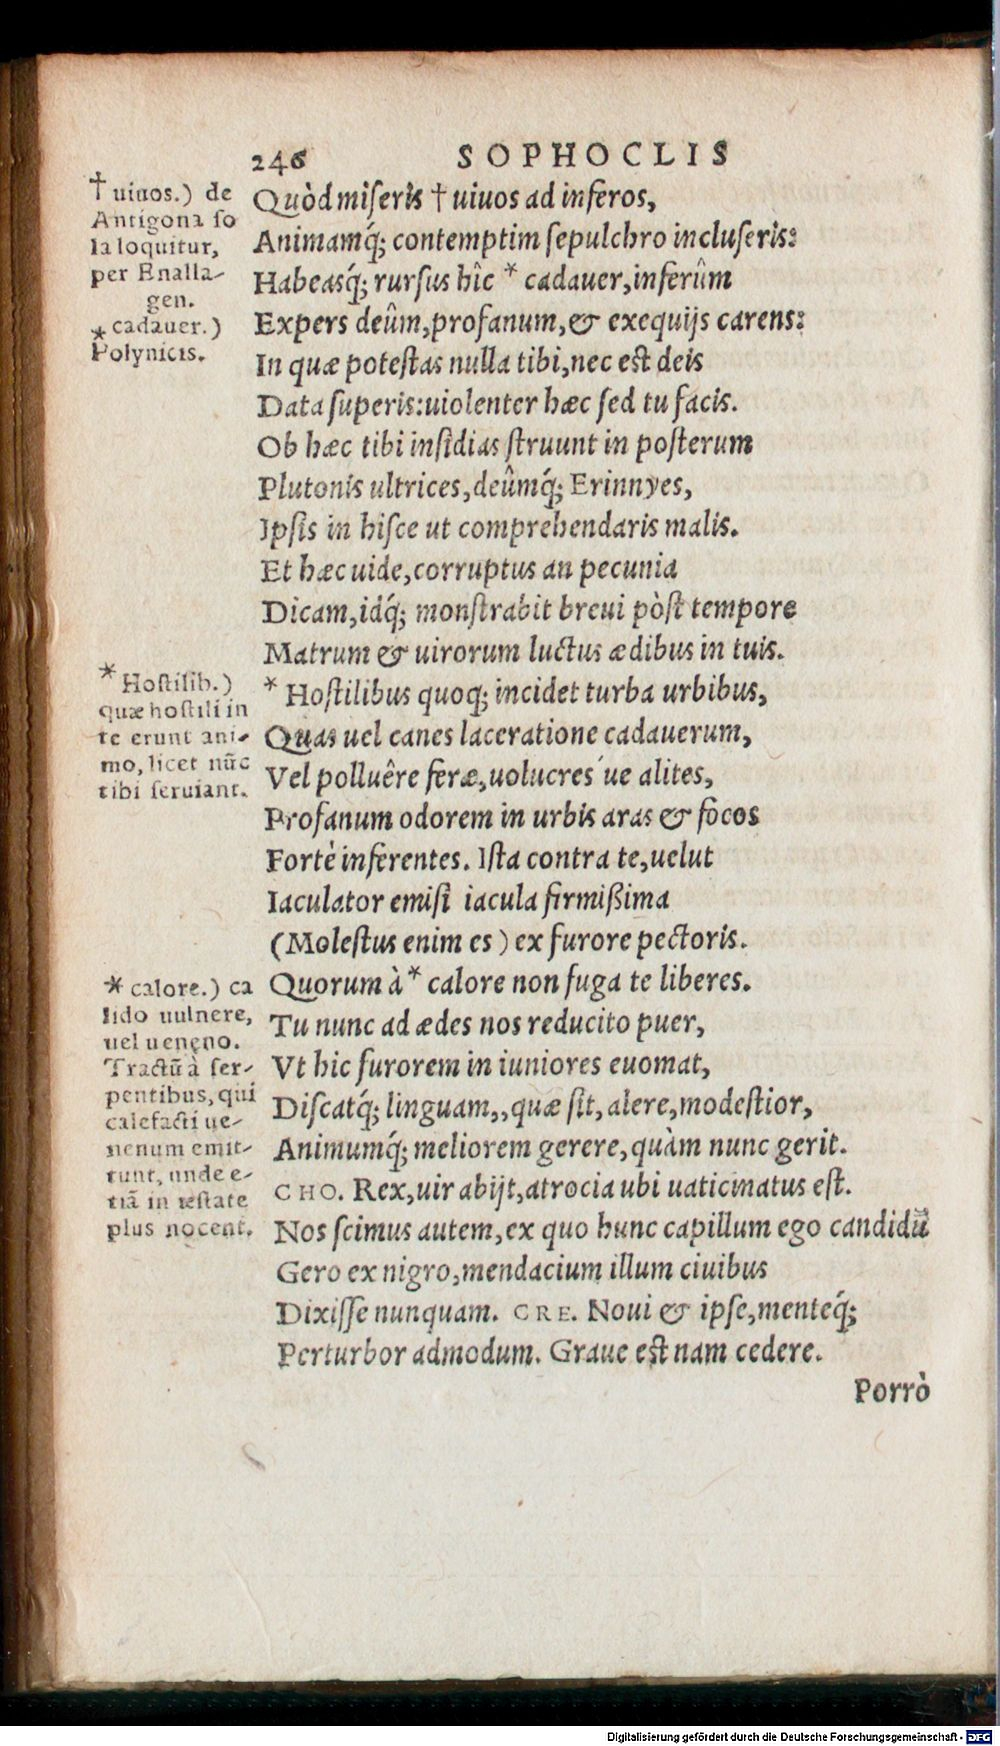 246 SOPHOCLIS
† uiuos.) de
Antigona so
la loquitur,
per Enalla-
gen.
* cadauer.)
Polynicis.
Quòd miseris † uiuos ad inferos,
Animamq́; contemptim sepulchro incluseris:
Habeasq́; rursus hîc * cadauer, inferûm
Expers deûm, profanum, & exequijs carens:
In quæ potestas nulla tibi, nec est deis
Data superis: uiolenter hæc sed tu facis.
Ob hæc tibi insidias struunt in posterum
Plutonis ultrices, deûmq́; Erinnyes,
Ipsis in hisce ut comprehendaris malis.
Et hæc uide, corruptus an pecunia
Dicam, idq́; monstrabit breui pòst tempore
Matrum & uirorum luctus ædibus in tuis.
* Hostilib.)
quæ hostili in
te erunt ani-
mo, licet nũc
tibi seruiant.
* Hostilibus quoq; incidet turba urbibus,
Quas uel canes laceratione cadauerum,
Vel polluêre feræ, uolucres 'ue alites,
Profanum odorem in urbis aras & focos
Fortè inferentes. Ista contra te, uelut
Iaculator emisi iacula firmißima
(Molestus enim es) ex furore pectoris.
* calore.) ca
lido uulnere,
uel ueneno.
Tractũ à ser-
pentibus, qui
calefacti ue-
nenum emit-
tunt, unde e-
tiã in æstate
plus nocent.
Quorum à * calore non fuga te liberes.
Tu nunc ad ædes nos reducito puer,
Vt hic furorem in iuniores euomat,
Discatq́; linguam,, quæ sit, alere, modestior,
Animumq́; meliorem gerere, quàm nunc gerit.
CHO. Rex, uir abijt, atrocia ubi uaticinatus est.
Nos scimus autem, ex quo hunc capillum ego candidũ
Gero ex nigro, mendacium illum ciuibus
Dixisse nunquam. CRE. Noui & ipse, menteq́;
Perturbor admodum. Graue est nam cedere.
Porrò
Digitalisierung gefördert durch die Deutsche Forschungsgemeinschaft - DFG